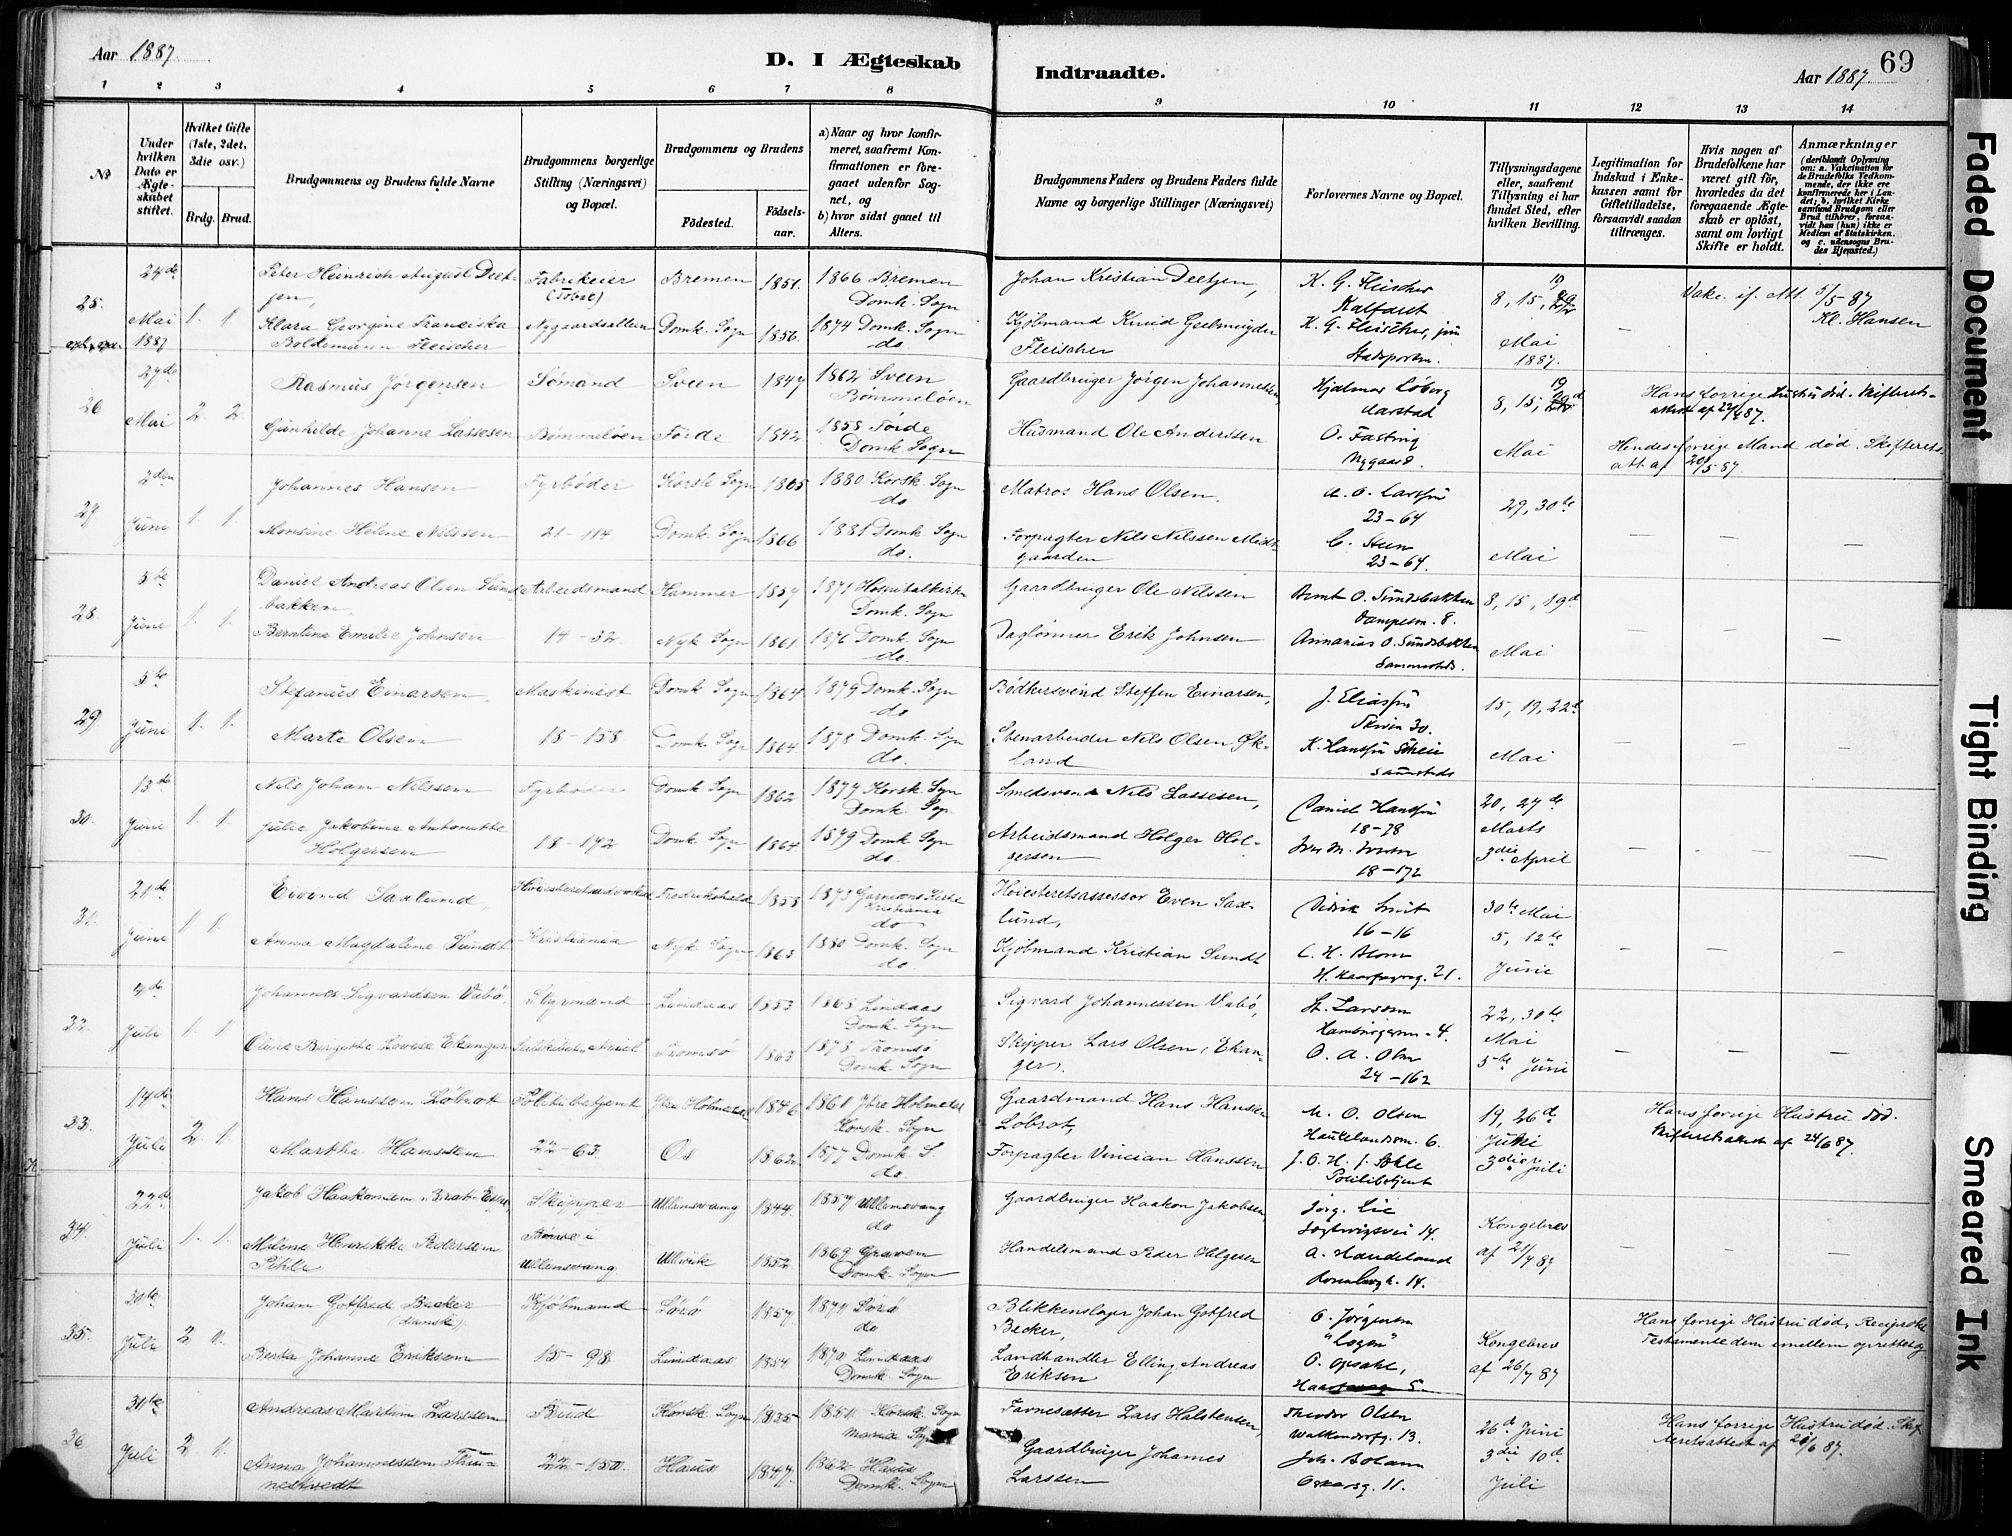 Aar 1887.
D. I Ægteskab
Indtraadte.
Aar 1887.
69
1 2 3 4 5 6 7 8 9 10 11 12 13 14
No
Under hvilken Dato er Ægteskabet stiftet.
Hvilket Gifte (1ste, 2det, 3die osv.)
Brdg. Brud.
Brudgommens og Brudens fulde Navne
Brudgommens borgerlige Stilling (Næringsvei) og Bopæl.
Brudgommens og Brudens
Fødested. Fødselsaar.
a) Naar og hvor konfirmeret, saafremt Konfirmationen er foregaaet udenfor Sognet, og
b) hvor sidst gaaet til Alters.
Brudgommens Faders og Brudens Faders fulde Navne og borgerlige Stillinger (Næringsvei)
Forlovernes Navne og Bopæl.
Tillysningsdagene eller, saafremt Tillysning ei har fundet Sted, efter hvilken Bevilling.
Legitimation for Indskud i Enkekassen samt for Giftetilladelse, forsaavidt saadan tiltrænges.
Hvis nogen af Brudefolkene har været gift før, hvorledes da det foregaaende Ægteskab er opløst, samt om lovligt Skifte er holdt.
Anmærkninger
(deriblandt Oplysning om: a. Vakcination for de Brudefolks Vedkommende, der ikke ere konfirmerede her i Landet; b. hvilket Kirkesamfund Brudgom eller Brud tilhører, forsaavidt han (hun) ikke er Medlem af Statskirken, og c. udensogns Brudes Hjemsted.)
25. 24de Mai 1887 1. 1
Peter Heinrich August Deetjen, Fabrikeier Bremen 1851. 1866 Bremen Domk. Sogn
Johan Kristian Deetjen, K. G. Fleischer Kalfaret 8, 15, 19
Vakc. if. Att. 5/5 87 Kl. Hansen
Klara Georgine Franciska Boldemann Fleischer Nygaardsalleen Domk. Sogn 1856. 1874 Domk. Sogn do
Kjøbmand Knud Geelmuyden Fleischer K. G. Fleischer, jun Stadsporten. Mai 1887.
26 27de Mai 2. 2
Rasmus Jørgensen Sømand Sveen 1847 1862 Sveen Bømmeløen
Gaardbruger Jørgen Johannessen, Hjalmar Løberg Aarstad 8, 15, 19
Hans forrige Hustru død. Skifteretsattest af 22/4 87.
Gunhilde Johanne Lassesen Bømmeløen Førde 1842 1858 Førde Domk. Sogn
Husmand Ole Andersen O. Fasting Nygaard. Mai
Hendes forrige Mand død. Skifterets-att. af 20/5 87
27 2den Juni 1. 1
Johannes Hansen Fyrbøder Korsk. Sogn 1865 1880 Korsk. Sogn do
Matros Hans Olsen, A. O. Larssen 23-64 29, 30te
Monsine Helene Nilssen 21-114 Domk. Sogn 1866 1881 Domk. Sogn do.
Forpagter Nils Nilssen Midtgaarden C. Steen 23-64. Mai
28 5te Juni 1. 1
Daniel Andreas Olsen Sundsbakken, Arbeidsmand Hammer 1857 1871 Hospitalkirken Domk. Sogn
Gaardbruger Ole Nilssen Bernt O. Sundsbakken Dampesm. 8. 8, 15, 19de
Berntine Emilie Johnsen 14-32 Nyk. Sogn 1861. 1876 Domk. Sogn do.
Daglønner Erik Johnsen Annanias O. Sundsbakken Sammesteds. Mai
29 5te Juni 1. 1.
Stefanus Einarsen, Maskinist Domk. Sogn 1864 1879 Domk. Sogn do
Bødkersvend Steffen Einarsen, J. Eliassen Skiven 30. 15, 19, 22de
Marte Olsen 18-158 Domk. Sogn 1864. 1878 Domk. Sogn do.
Stenarbeider Nils Olsen Økland K. Hanssen Skeie sammesteds Mai
30. 13de Juni 1. 1.
Nils Johan Nilssen Fyrbøder Domk. Sogn 1862 1877 Korsk. Sogn Domk. Sogn
Smedsvend Nils Lassesen, Daniel Hanssen 18-78 20, 27de Marts
Julie Jakobine Antonette Holgersen 18-192 Domk. Sogn 1864. 1879 Domk. Sogn do.
Arbeidsmand Holger Holgersen 18-172 3die April
31. 21de Juni 1 1
Eivind Saxlund, Høiesteretsadvokat Fredrikshald 1858 1873 Garnisons Kirke Kristiania do
Høiesteretsassessor Even Saxlund, Didrik Smit 16-16 30te Mai
Anna Magdalene Sundt Kristiania Nyk. Sogn 1863 1880 Domk. Sogn do.
Kjøbmand Kristian Sundt C. H. Blom 21. 5, 12te Juni
32. 4de Juli 1. 1
Johannes Sigvardsen Vabø. Styrmand Lindaas 1853 1868 Lindaas Domk. Sogn
Sigvard Johannessen Vabø, St. Larsen Hamburgersm. 4. 22, 30te Mai
Oline Birgitte Lovise Ekanger Tromsø 1863 1878 Tromsø Domk. Sogn
Skipper Lars Olsen, Ekanger, O. A. Olsen 24-162 5te Juni
33. 14de Juli 2. 1.
Hans Hanssen Løbrot Politibetjent Ytre Holmedal 1846 1861 Ytre Holmedal Korsk. Sogn
Gaardmand Hans Hansen Løbrot, M. O. Olsen Haukelandsm. 6. 19, 26de Juni
Hans forrige Hustru død. Skifteretsattest af 24/6 87.
Marthe Hanssen 22-63 Os 1862 1877 Domk. S. do.
Forpagter Vincian Hanssen Politibetjent 3die Juli
34. 22de Juli 1. 1.
Jakob Haakonsen Skipper Ullensvang 1844. 1859 Ullensvang do
Gaardbruger Haakon Jakobsen, Jørg. Lie 14. Kongebrev af 21/7 87
Milene Henrikke Pedersen Børve i Ullensvang Ullvike 1852 1869 Graven Domk. Sogn
Handelsmand Peder Helgesen A. Haudeland Rosenbergg. 14.
35. 30te Juli 2 1.
Johan Gotfred Becker (danske) Kjøbmand Sorø 1857 1871 Sorø do
Blikkenslager Johan Gotfred Becker, O. Jørgensen "Logen" Kongebrev af 26/7 87
Hans forrige Hustru død, Reciproke Testamente dem emellem oprettet
Berta Johanne Eriksen 15-98 Lindaas 1854 1870 Lindaas Domk. Sogn
Landhandler Elling Andreas Eriksen O. Opsahl, 5.
36. 31te Juli 2 1.
Andreas Martin Larssen Bud Korsk. Sogn 1835 1851 Korsk. Sogn Maria Sogn
Favnesætter Lars Halstensen, Theodor Olsen Walkendorfg. 13. 26de Juni
Hans forrige Hustru død. Skifteretsattest af 28/6 87.
Anna Johannessen Thunestvedt 22-150 Haus 1847. 1862 Haus Domk. Sogn
Gaardbruger Johannes Larssen Joh. Bolann Oskarsg. 11. 3die 10de Juli
Faded Document
Tight Binding
Smeared Ink